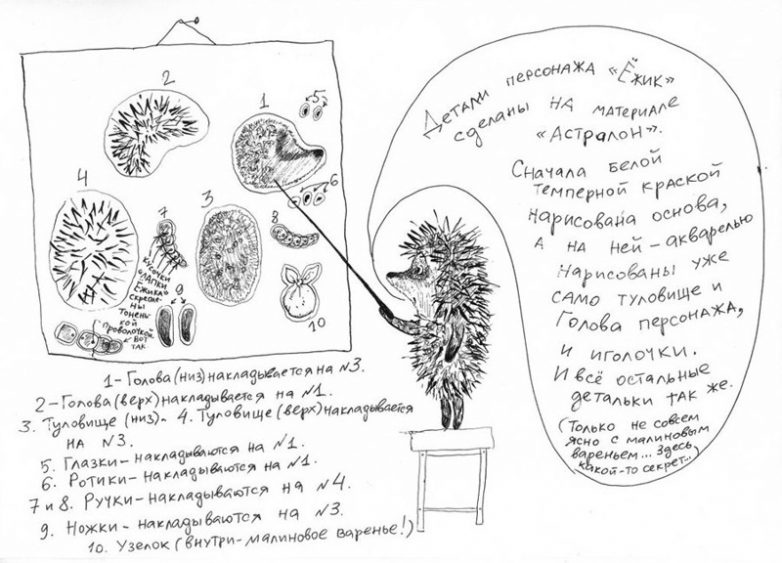 2
1
5
6
4
3
7
8
Кусочки
«лапки
Ёжика»
скрепле-
ны
тонень-
кой
проволочкой
вот
так
9
10
Детали персонажа «Ёжик»
сделаны на материале
«Астралон».
Сначала белой
темперной краской
нарисована основа,
а на ней – акварелью
нарисованы уже
само туловище и
голова персонажа,
и иголочки.
И всё остальные
детальки так же.
(Только не совсем
ясно с малиновым
вареньем... Здесь
какой-то секрет...)
1 – Голова (низ) накладывается на №3.
2 – Голова (верх) накладывается на №1.
3. Туловище (низ). – 4. Туловище (верх) накладывается
на №3.
5. Глазки – накладываются на №1.
6. Ротики – накладываются на №1.
7 и 8. Ручки – накладываются на №4.
9. Ножки – накладываются на №3.
10. Узелок (внутри – малиновое варенье!)